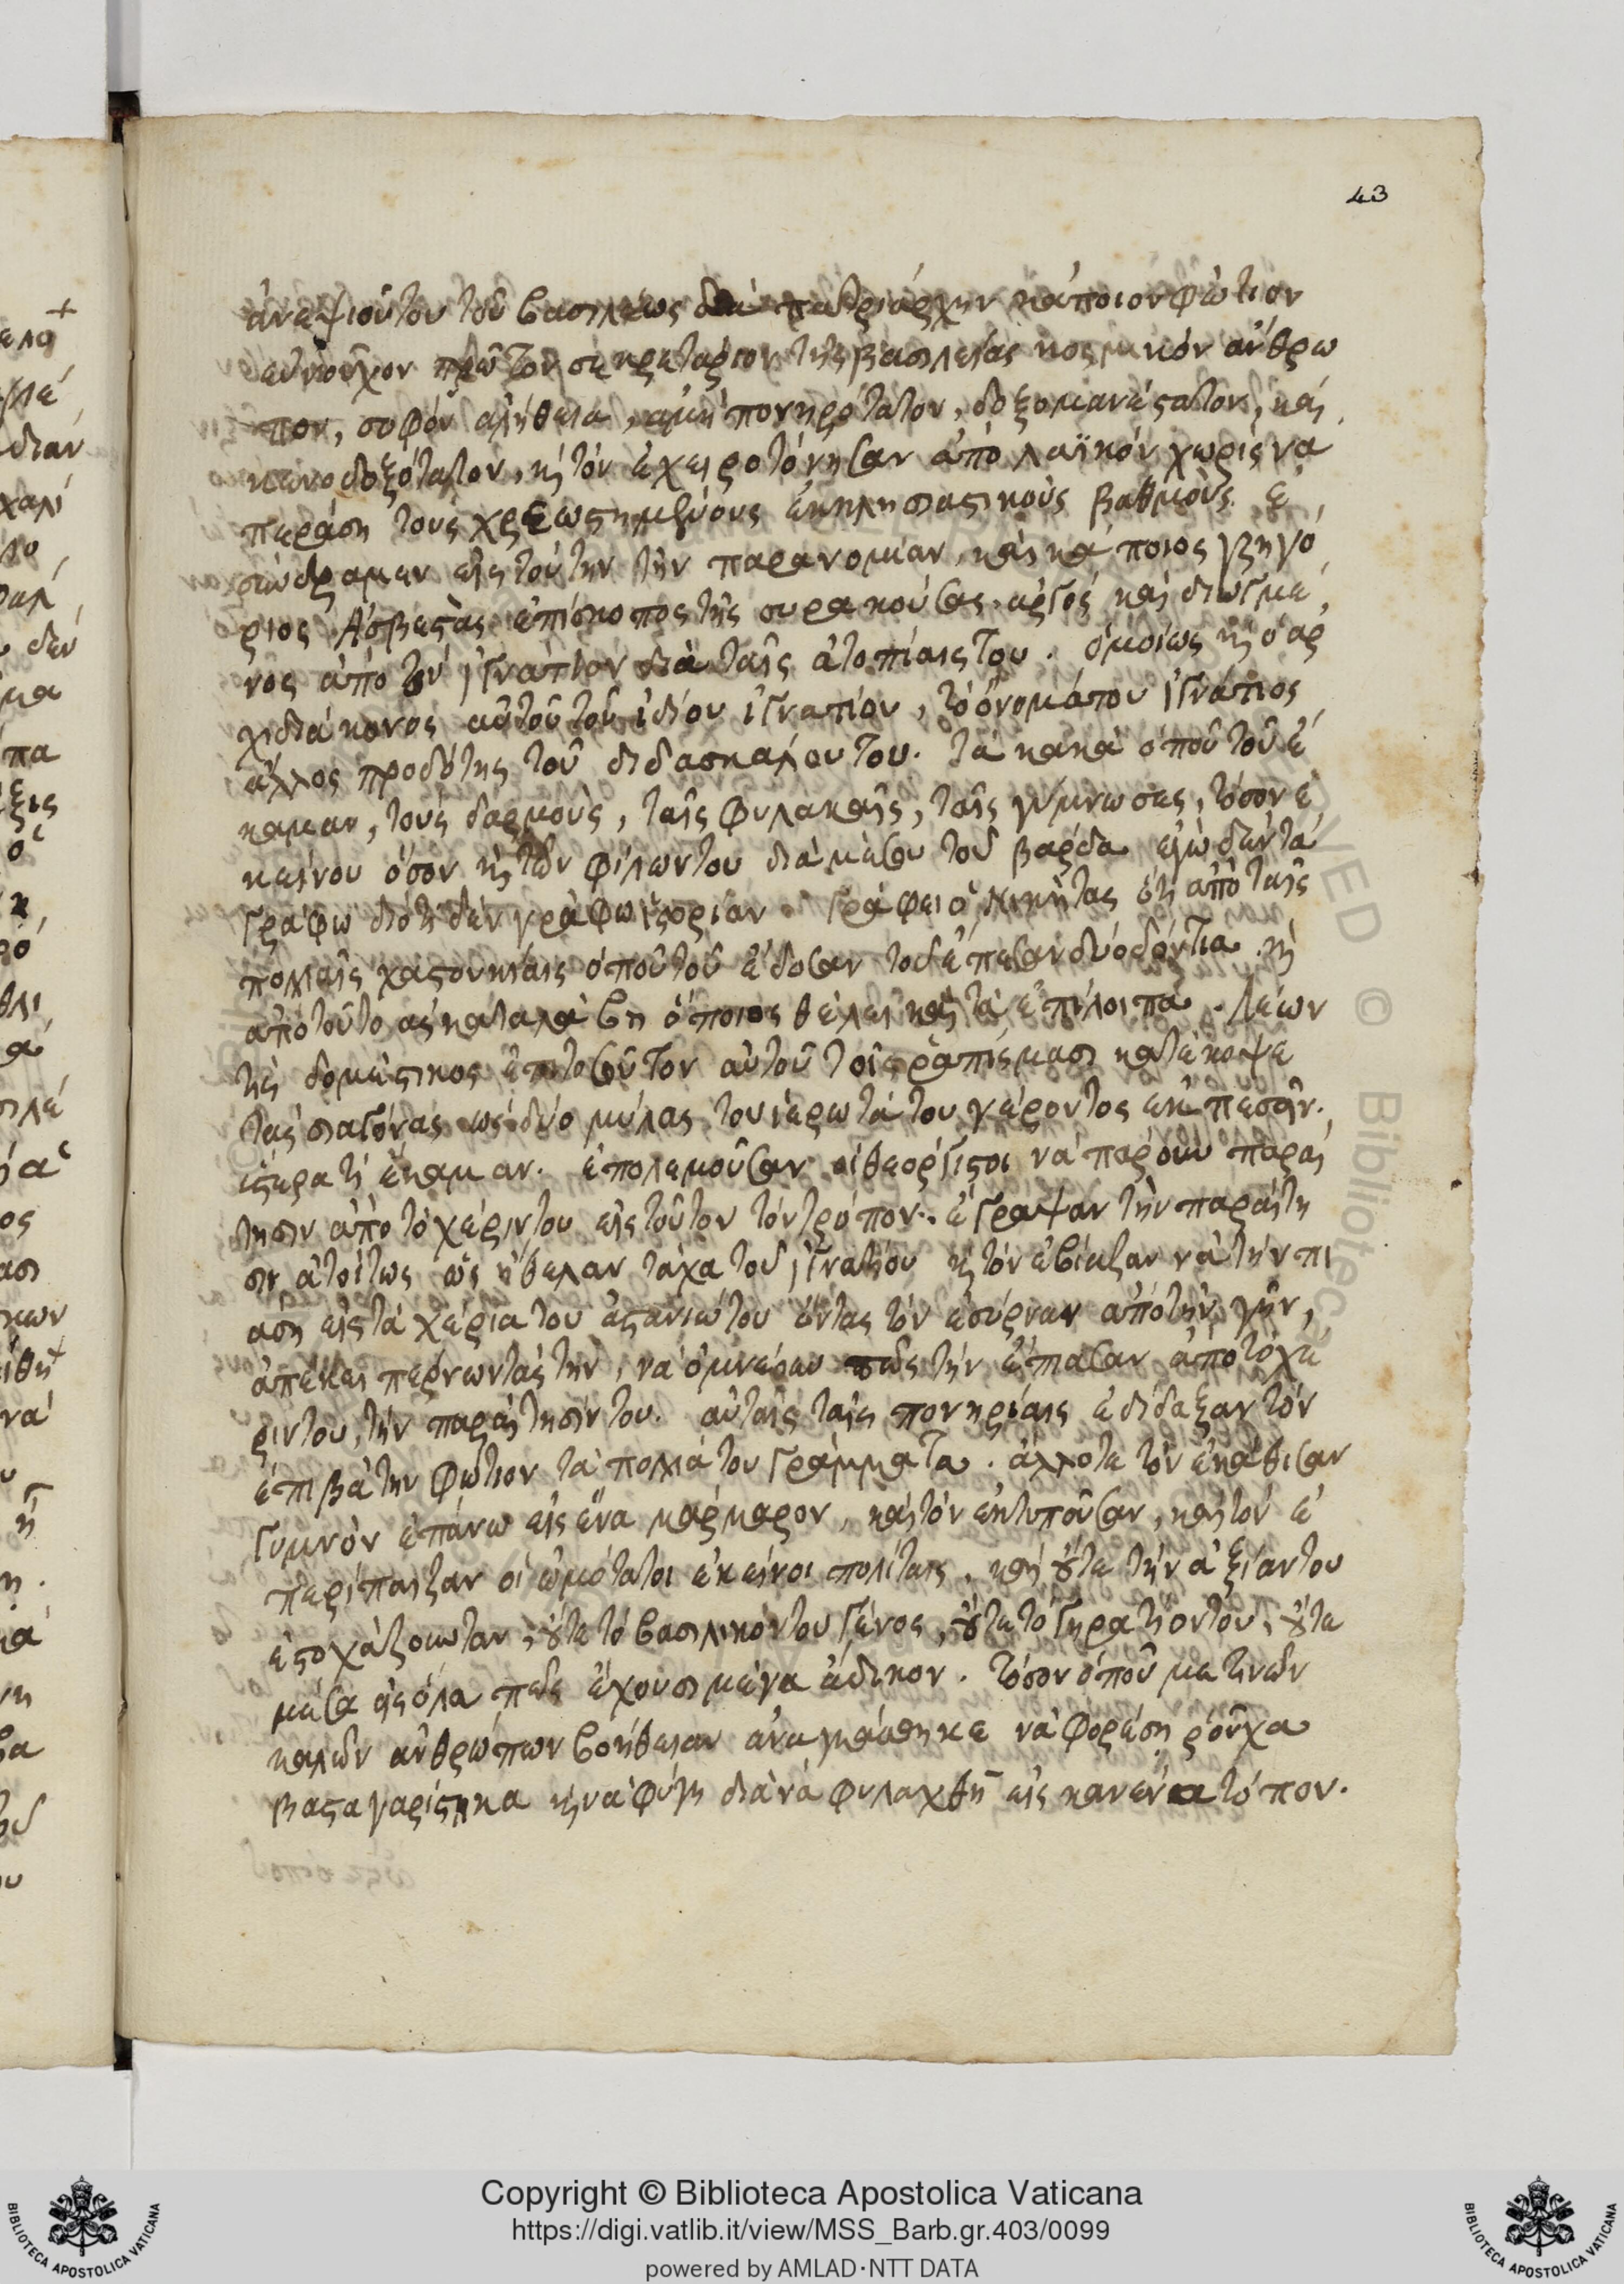 43
ἀνεψιοῦτου τοῦ βασιλέως διὰ πατριάρχην κάποιον φώτιον
εὐνοῦχον πρῶτον σεκρετάριον τῆς βασιλείας κοσμικόν ἄνθρω
πον, σοφόν ἀλήθεια, ἀμὴ πονηρότατον, δοξομανέστατον, καὶ
κενοδοξότατον, κὶ τόν ἐχειροτόνησαν ἀπό λαϊκόν χωρίς να
περάση τους χρεωστημένους ἐκκλησιαστικούς βαθμούς. ἐ
σύνδραμεν εἰς τούτην τὴν παρανομίαν, καὶ κά ποιος γρηγό
ριος Ἀσβεστὰς ἐπίσκοπος τῆς συρακούσας, ἀργός καὶ διωγμέ
νος ἀπό τόν ἰγνάτιον διὰ ταῖς ἀτοπίαις του. ὁμοίως κὶ ὁ ἀρ
χιδιάκονος αὐτοῦ τοῦ ἰδίου ἰγνατίου, τὸ ὄνομάτου ἰγνάτιος
ἄλλος προδότης τοῦ διδασκάλου του. τὰ κακὰ ὁποῦ τοῦ ἐ
καμαν, τούς δαρμούς, ταῖς φυλακαῖς, ταῖς γύμνωσες, τόσον ἐ
κείνου ὅσον κὶ τῶν φίλωντου διὰ μέσου τοῦ βάρδα ἐγὼ δέν τά
γράφω διότι δὲν γράφω ἱστορίαν. Γράφει ὁ Νικήτας ὅτι ἀπό ταῖς
πολλαῖς χαστουκιαῖς ὁποῦ τοῦ ἐδοσαν τοῦ ἐπεσαν δύο δόντια. κὶ
ἀπό τοῦτο ἂς καταλάβη ὁ ποιος θέλει καὶ τὰ ἐπίλοιπα. Λέων
τις δομέστικος ἐπιτοσοῦτον αὐτοῦ τοῖς ῥαπίσμασι κατέκοψε
τὰς σιαγόνας ὡς δύο μύλας του ἱερωτάτου γέροντος ἐκπέσειν.
ὕστερα τί ἔκαμαν. ἐπολεμοῦσαν οἱ θεοργιστοι νὰ πάρουν παραί
τησιν ἀπό τὸ χέριντου εἰς τοῦτον τόν τρόπον. ἔγραψαν τὴν παραίτη
σιν ἀτοίτως ὡς ἤθελαν τάχα τοῦ ἰγνατίου κὶ τόν ἐβίαζαν νὰ τὴν πι
άση εἰς τὰ χέρια του ἀστανιῶ του ὄντας τόν ἐσύρναν ἀπό τὴν γῆν,
ἀπέκει πέρνωντάς την, νὰ ὀμνέουν πῶς τὴν ἔπιασαν ἀπό τὸ χέ
ριντου, τὴν παραίτησίντου. αὐταῖς ταῖς πονηρίαις ἐδίδαξαν τόν
ἐπιβάτην Φώτιον τὰ πολλά του γράμματα. ἄλλοτε τόν ἐκάθισαν
γυμνόν ἐπάνω εἰς ἕνα μάρμαρον, καὶ τόν ἐκτυποῦσαν, καὶ τόν ἐ
περίπαιζαν οἱ ὠμότατοι ἐκεῖνοι πολίταις, καὶ ȣτε τὴν ἀξίαντου
ἐστοχάζουνταν, ȣτε τὸ βασιλικόντου γένος, ȣτε τὸ γηρατιόντου, ȣτε
μέσα εἰς ὅλα πῶς ἔχουσι μέγα ἄδικον. τόσον ὁποῦ με τινῶν
καλῶν ἀνθρώπων βοήθειαν ἀναγκάσθηκε νὰ φορέση ῥοῦχα
βασταγαρίστικα κὶ νὰ φύγη διὰ νὰ φυλαχθῆ εἰς κανένα τόπον.
Copyright © Biblioteca Apostolica Vaticana
https://digi.vatlib.it/view/MSS_Barb.gr.403/0099
powered by AMLAD·NTT DATA